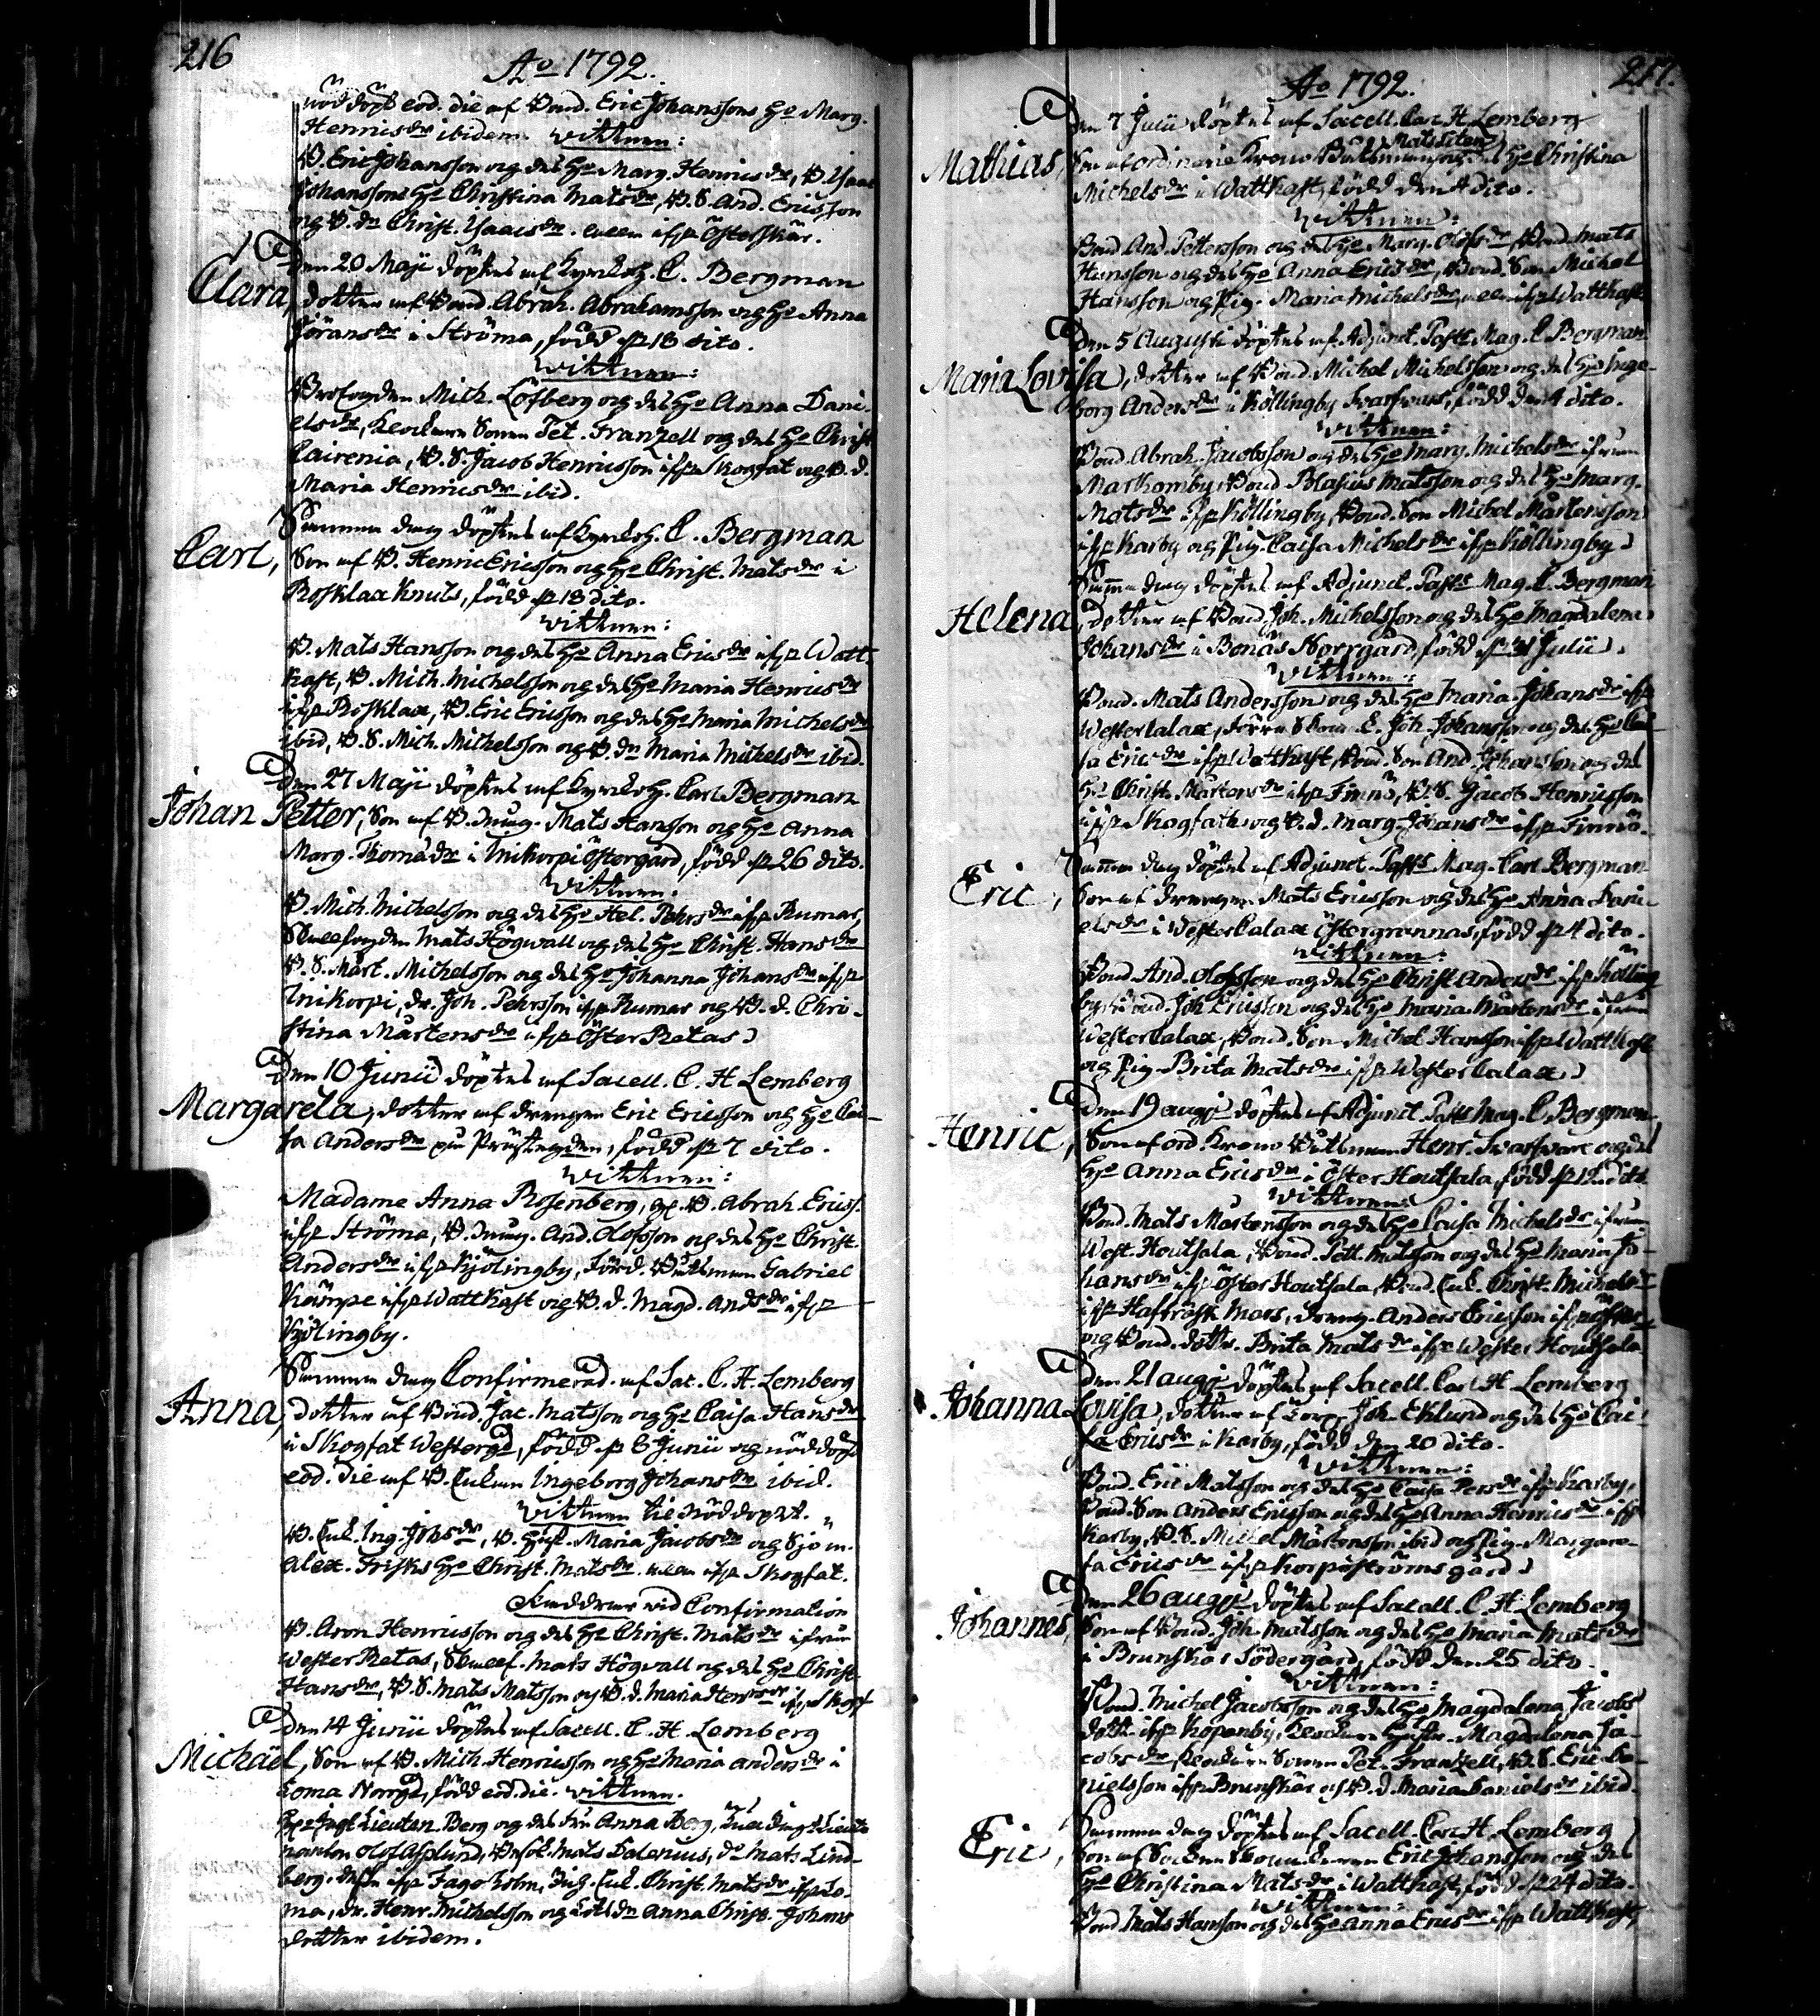 216
Ao 1792.
nöddöpt eod. die af Bond. Eric Johanssons Ho Marg.
Henricsdr ibidem. Vittnen:
B. Eric Johansson og des Ho Marg. Henricsdr, B. Isaac
Johanssons Ho Christina Matsdr, B. S. And. Ericsson
og B. dr Christ. Isaacsdr. allen ifr Österskär.
Den 20 Maji döptes af Kyrkoh. C. Bergman
Clara, dotter af Bond. Abrah. Abrahamsson og Ho Anna
Göransdr i Ströma, född p 18 dito.
Vittnen:
Profogden Mich. Löfberg og des Ho Anna Dani-
elsdr, Klockare Sonen Pet. Franzell og des Ho Christ
Cairenia, B. S. Jacob Henricsson ifr Skogfat og B. d.
Maria Henricsdr ibid.
Samma dag döptes af Kyrkoh. C. Bergman
Carl, Son af B. Henric Ericsson og Ho Christ. Matsdr i
Rosklax Knuts, född p 18 dito.
Vittnen:
B. Mats Hansson og des Ho Anna Ericsdr ifr Watt-
kast, B. Mich. Michelsson og des Ho Maria Henricsdr
ifr Rosklax, B. Eric Ericsson og des Ho Maria Michelsdr
ibid, B. S. Mich. Michelsson og B. dr Maria Michelsdr ibid.
Den 27 Maji döptes af Kyrkoh. Carl Bergman
Johan Petter, Son af B. Mats Hansson og Ho Anna
Marg. Thomædr i Inikorpi Östergård, född p 26 dito.
Vittnen:
B. Mich. Michelsson og des Ho Hel. Pehrsdr ifr Rumar,
Mats Högwall og des Ho Christ. Hansdr
B. S. Mårt. Michelsson og des Ho Johanna Johansdr ifr
Inikorpi, dr. Joh. Pehrsson ifr Rumar og B. d. Chri-
stina Mårtensdr ifr Öster Retas
Den 10 Junii döptes af Sacell. C. H Lemberg
Margareta, dotter af drengen Eric Ericsson og Ho Cai-
sa Andersdr på Prästegården, född p 7 dito.
Vittnen:
Madame Anna Rosenberg, gl. B. Abrah. Ericss.
ifr Ströma, B. And. Olofsson og des Ho Christ.
Andersdr ifr Kjölingby, Båtsman Gabriel
Kämpe ifr Wattkast og B. d. Magd. Andersdr ifr
Kjölingby.
Samma dag Confirmerad af Sac. C. H. Lemberg
Anna, dotter af Bond. Jac. Matsson og Ho Caisa Hansdr
i Skogfat Westergd, född p 6 Junii og nöddöpt
eod. die af B. Enkan Ingeborg Johansdr ibid.
Vittnen til nöddopet.
B. Enk. Ing. Johsdr, B. Hust. Maria Jacobsdr og Sjöm.
Alex. Frisks Ho Christ. Matsdr. allen ifr Skogfat.
Faddrar vid Confirmation
B. Aron Henricsson og des Ho Christ. Matsdr ifrån
Wester Retas, Mats Högvall og des Ho Christ.
Hansdr, B. S. Mats Matsson og B. d. Maria Henricsdr ifr Skogf
Den 14 Junii döptes af Sacell. C. H. Lemberg
Michäel, Son af B. Mich. Henricsson og Ho Maria Andersdr i
Toma Norrgd, född eod. die. Vittnen.
Lieuten. Berg og des fru Anna Berg,
Olof Asplund, Mats Dalenius, do Mats Lind-
berg, ifr Fagerholm, Enk. Christ. Matsdr ifr To-
ma, dr. Henr. Michelsson og Anna Christ. Johans
dotter ibidem.
217.
Ao 1792.
Den 7 Julii döptes af Sacell. Car. H. Lemberg
Mathias, Son af ordinarie Krono Båtsman og des Ho Christina
Michelsdr i Wattkast, född den 4 dito.
Vittnen:
Bond And. Pettersson og des Ho Marg. Olofsdr, Bond. Mats
Hansson og des Ho Anna Ericsdr, Bond. Son Michel
Hansson og Pig. Maria Michelsdr, allen ifr Wattkast
Den 5 Augusti döptes af Adjunct. Past. Mag. C. Bergman
Maria Lovisa, dotter af Bond Michel Michelsson og des Ho Inge-
borg Andersdr i Köllingby Svarfvars, född den 4 dito.
Vittnen:
Bond. Abrah. Jacobsson og des Ho Marg. Michelsdr ifrån
Markomby, Bond Blasius Matsson og des Ho Marg.
Matsdr ifr Köllingby, Bond. Son Michel Mårtensson
ifr Karby og Pig. Caisa Michelsdr ifr Köllingby
Samma dag döptes af Adjunct. Past. Mag. C. Bergman
Helena, dotter af Bond. Joh. Michelsson og des Ho Magdalena
Johansdr i Bonäs Norrgård, född p 31 Julii.
Vittnen:
Bond. Mats Andersson og des Ho Maria Johansdr ifr
Westerlalax, E. Joh. Johansson og des Ho Cai-
sa Ericsdr ifr Wattkast, Bond. Son And. Johansson og des
Ho Christ. Mårtensdr ifr Finnö, B. S. Jacob Henricsson
ifr Skogfat og B. d. Marg. Johansdr ifr Finnö.
Samma dag döptes af Adjunct. Past. Mag. Carl Bergman
Eric, Son af drengen Mats Ericsson og des Ho Anna Dani-
elsdr i Wester Calax Östergrannas, född p 4 dito.
Vittnen:
Bond. And. Olofsson og des Ho Christ. Andersdr ifr Kölling-
by, Bond. Joh Ericsson og des Ho Maria Mårtensdr ifrån
Wester Calax, Bond. Son Michel Hansson ifr Wattkast
og Pig Brita Matsdr ifr Wester Calax
Den 19 augi döptes af Adjunct. Past. Mag. C. Bergman
Henric, Son af ord. Krono Båtsman Henr. Swarfware og des
Ho Anna Ericsdr i Öster Houtsala, född p 12 dito.
Vittnen:
Bond. Mats Mårtensson og des Ho Caisa Michelsdr ifrån
West. Houtsala, Bond. Pett. Matsson og des Ho Maria Jo-
hansdr ifr Öster Houtsala, Bond. Enk. Christ. Michelsdr
ifr Hafträsk Mats, dreng. Anders Ericsson ifr
og Bond. dottr. Brita Matsdr ifr Wester Houtsala
Den 21 augi döptes af Sacell. Carl H. Lemberg
Johanna Lovisa, dotter af Joh. Eklund og des Ho Cai-
sa Ericsdr i Karby, född den 20 dito.
Vittnen:
Bond. Eric Matsson og des Ho Caisa Persdr ifr Karby,
Bond. Son Anders Ericsson og des Ho Anna Henricsdr ifr
Karby, B. S. Michel Mårtensson ibid og Pig. Margare-
ta Ericsdr ifr Korpoströms gård
Den 26 augi döptes af Sacell. C. H. Lemberg
Johannes, Son af Bond. Joh. Matsson og des Ho Maria Matsdr
i Brunskär Södergård, född den 25 dito.
Vittnen:
Bond. Michel Jacobsson og des Ho Magdalena Jacobs
dottr ifr Kopenby, Klockare Magdalena Ja-
cobsdr, Klockare Sonen Pet. Franzell, B. S. Eric Da-
nielsson ifr Brunskär og B. d. Maria Danielsdr ibid.
Samma dag döptes af Sacell. Carl H. Lemberg
Eric, Son af Eric Johansson og des
Ho Christina Matsdr i Wattkast, född p 24 dito.
Vittnen:
Bond Mats Hansson og des Ho Anna Ericsdr ifr Wattkast,